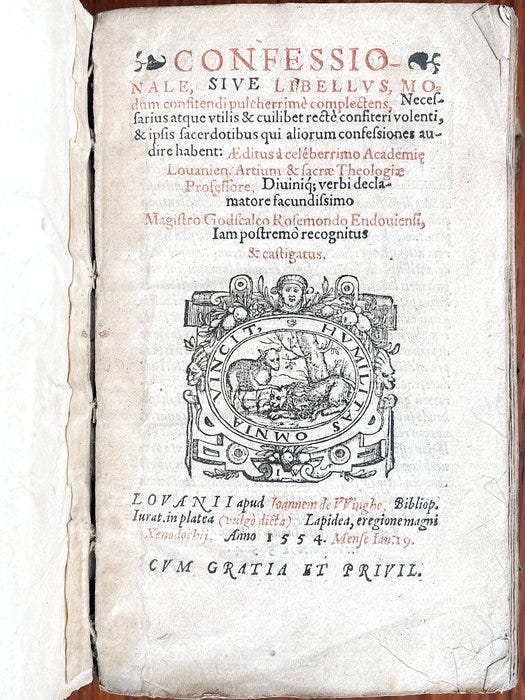 CONFESSIO-
NALE, SIVE LIBELLVS, MO-
dum confitendi pulcherrimè complectens, Neces-
sarius atque vtilis & cuilibet rectè confiteri volenti,
& ipsis sacerdotibus qui aliorum confessiones au-
dire habent: Æditus à celéberrimo Academię
Louanien. Artium & sacræ Theologiæ
Professore, Diuiniq; verbi decla-
matore facundissimo
Magistro Godscalco Rosemondo Endouiensi,
Iam postremò recognitus
& castigatus.
HVMILITAS OMNIA VINCIT,
I W
LOVANII apud Ioannem de VVinghe, Bibliop.
Iurat. in platea (vulgò dicta) Lapidea, è regione magni
Xenodochij, Anno 1554. Mense Ian. 19.
CVM GRATIA ET PRIVIL.